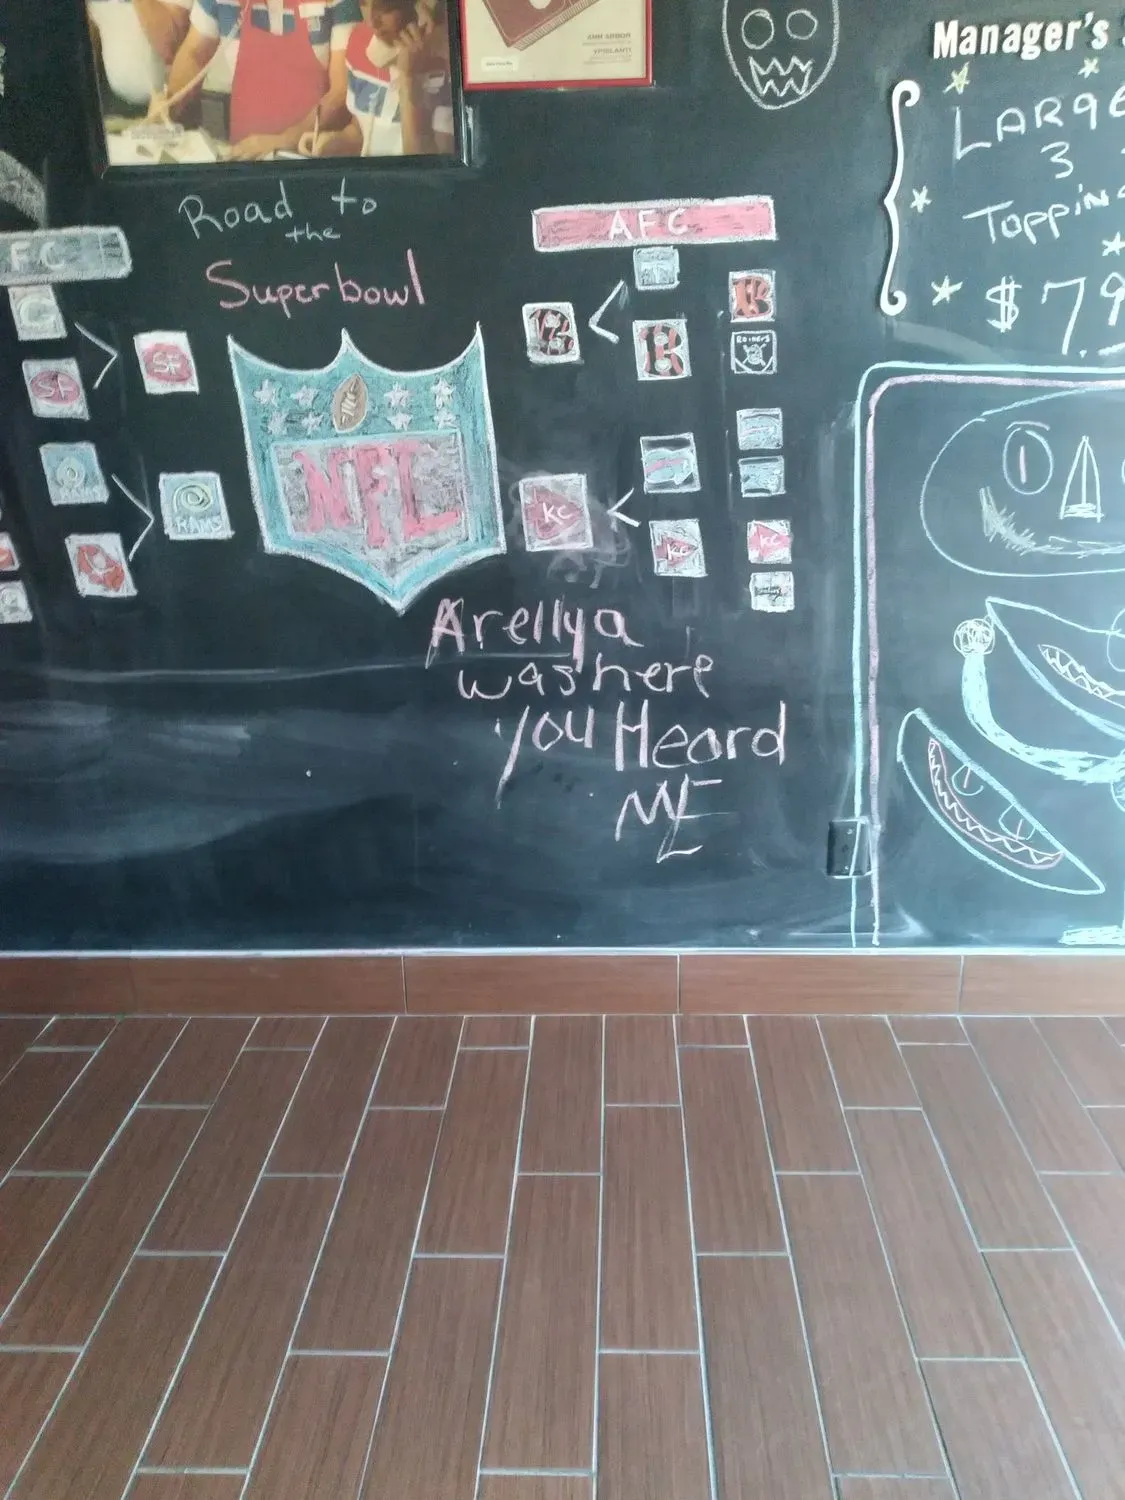 ANN ARBOR
YPSILANTI
Manager's
LARGE
3
TOPPING
$7.9
Road to
the
Superbowl
FC
AFC
SF
SF
RAMS
NFL
B
B
B
RAIDERS
KC
KC
KC
Arellya
was here
you Heard
ME